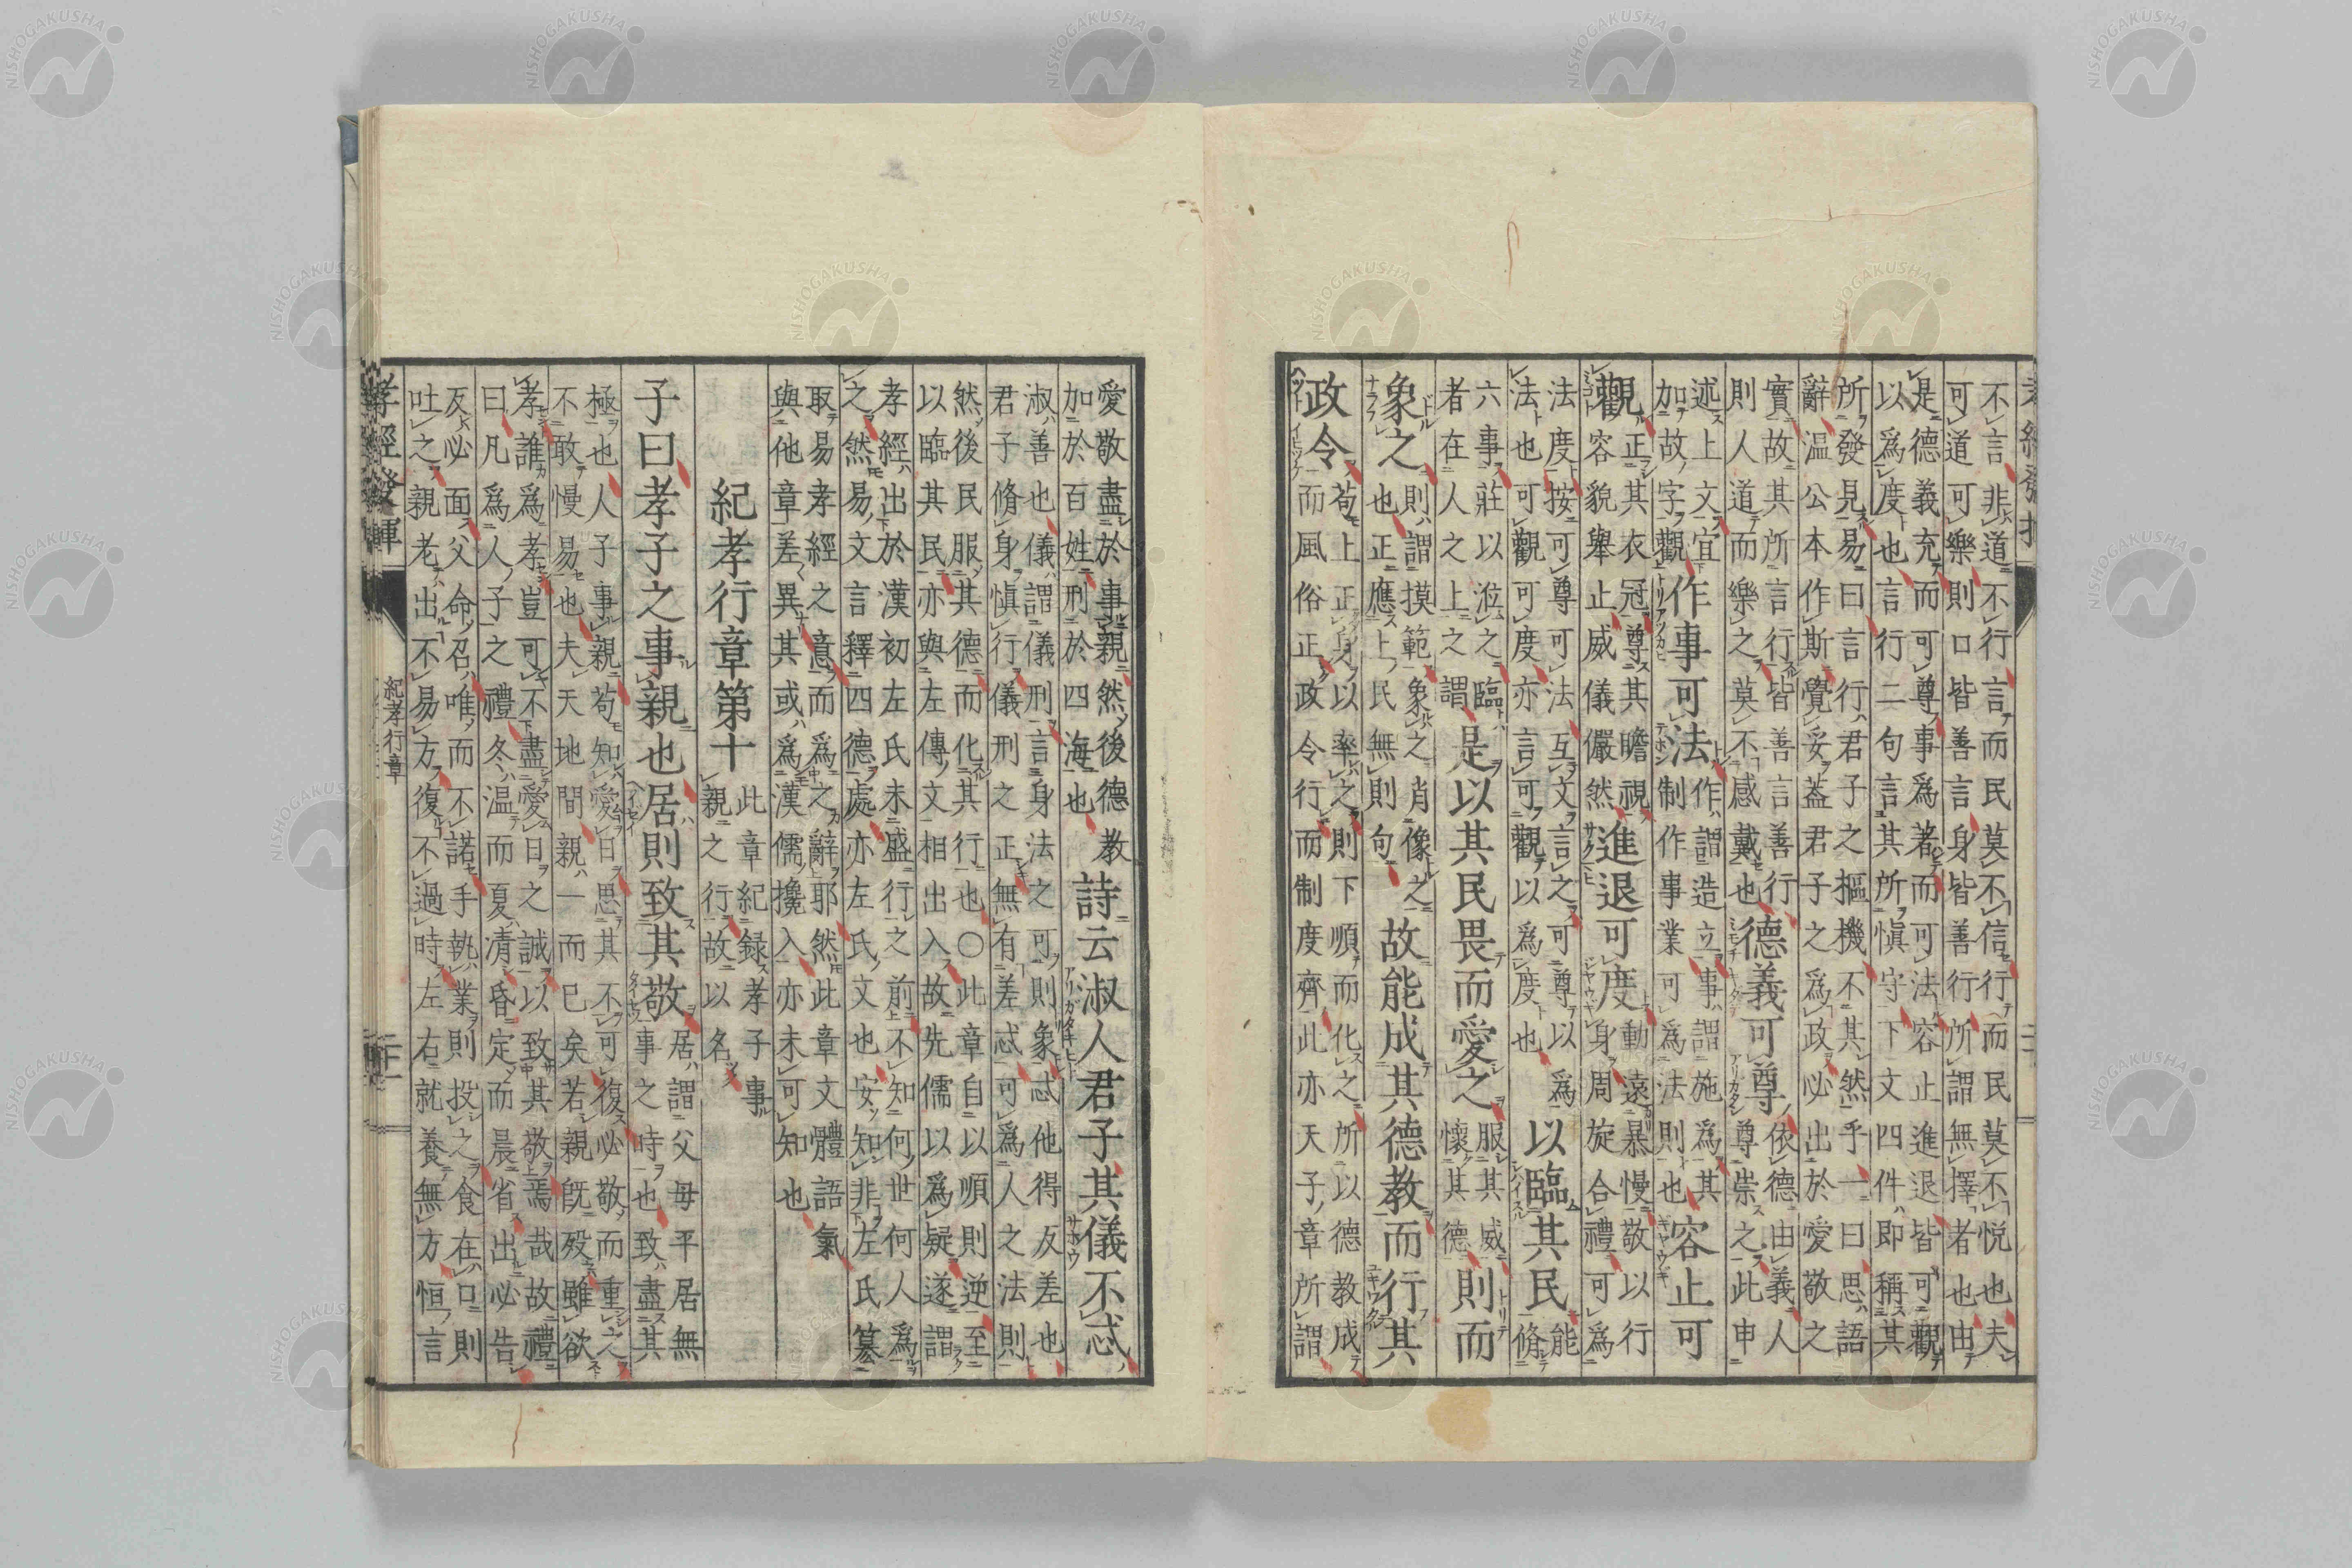 不言非道不行言而民莫不信行而民莫不悦也夫
可道可樂則口皆善言身皆善行所謂無擇者也由
是德義充而可尊事爲著而可法容止進退皆可觀
以爲度也言行二句言其所愼守下文四件即稱其
所發見易曰言行君子之樞機不其然乎一曰思語
辭温公本作斯覺妥蓋君子之爲政必出於愛敬之
實故其所言行皆善言善行
則人道而樂之莫不感戴也
德義可尊
依德由義人
尊崇之此申
述上文宜
加故字觀
作事可法
作謂造立事謂施爲其
制作事業可爲法則也
容止可
觀
正其衣冠尊其瞻視
容貌舉止威儀儼然
進退可度
動遠暴慢敬以行
身周旋合禮可爲
法度按可尊可法互文言之可尊以爲
法也可觀可度亦言可觀以爲度也
以臨其民
能
脩
六事莊以涖之臨
者在人之上之謂
是以其民畏而愛之
服其威
懷其德
則而
象之
則謂摸範象之肖像之
也正應上民無則句
故能成其德教而行其
政令
苟上正身以率之則下順而化之所以德教成
而風俗正政令行而制度齊此亦天子章所謂
愛敬盡於事親然後德教
加於百姓刑於四海也
詩云淑人君子其儀不忒
淑善也儀謂儀刑言身法之可則象忒他得反差也
君子脩身愼行儀刑之正無有差忒可爲人之法則
然後民服其德而化其行也〇此章自以順則逆至
以臨其民亦與左傳文相出入故先儒以爲疑遂謂
孝經出於漢初左氏未盛行之前不知何世何人爲
之然易文言釋四德處亦左氏文也安知非左氏纂
取易孝經之意而爲之辭耶然此章文體語氣
與他章差異其或爲漢儒攙入亦未可知也
紀孝行章第十
此章紀録孝子事
親之行故以名
子曰孝子之事親也居則致其敬
居謂父母平居無
事之時也致盡其
極也人子事親苟知愛日思其不可復必敬而重之
不敢慢易也夫天地間親一而已矣若親旣殁雖欲
孝誰爲孝豈可不盡愛日之誠以致其敬焉哉故禮
曰凡爲人子之禮冬温而夏凊昏定而晨省出必告
反必面父命召唯而不諾手執業則投之食在口則
吐之親老出不易方復不過時左右就養無方恒言
孝經發揮
紀孝行章
NISHOGAKUSHA